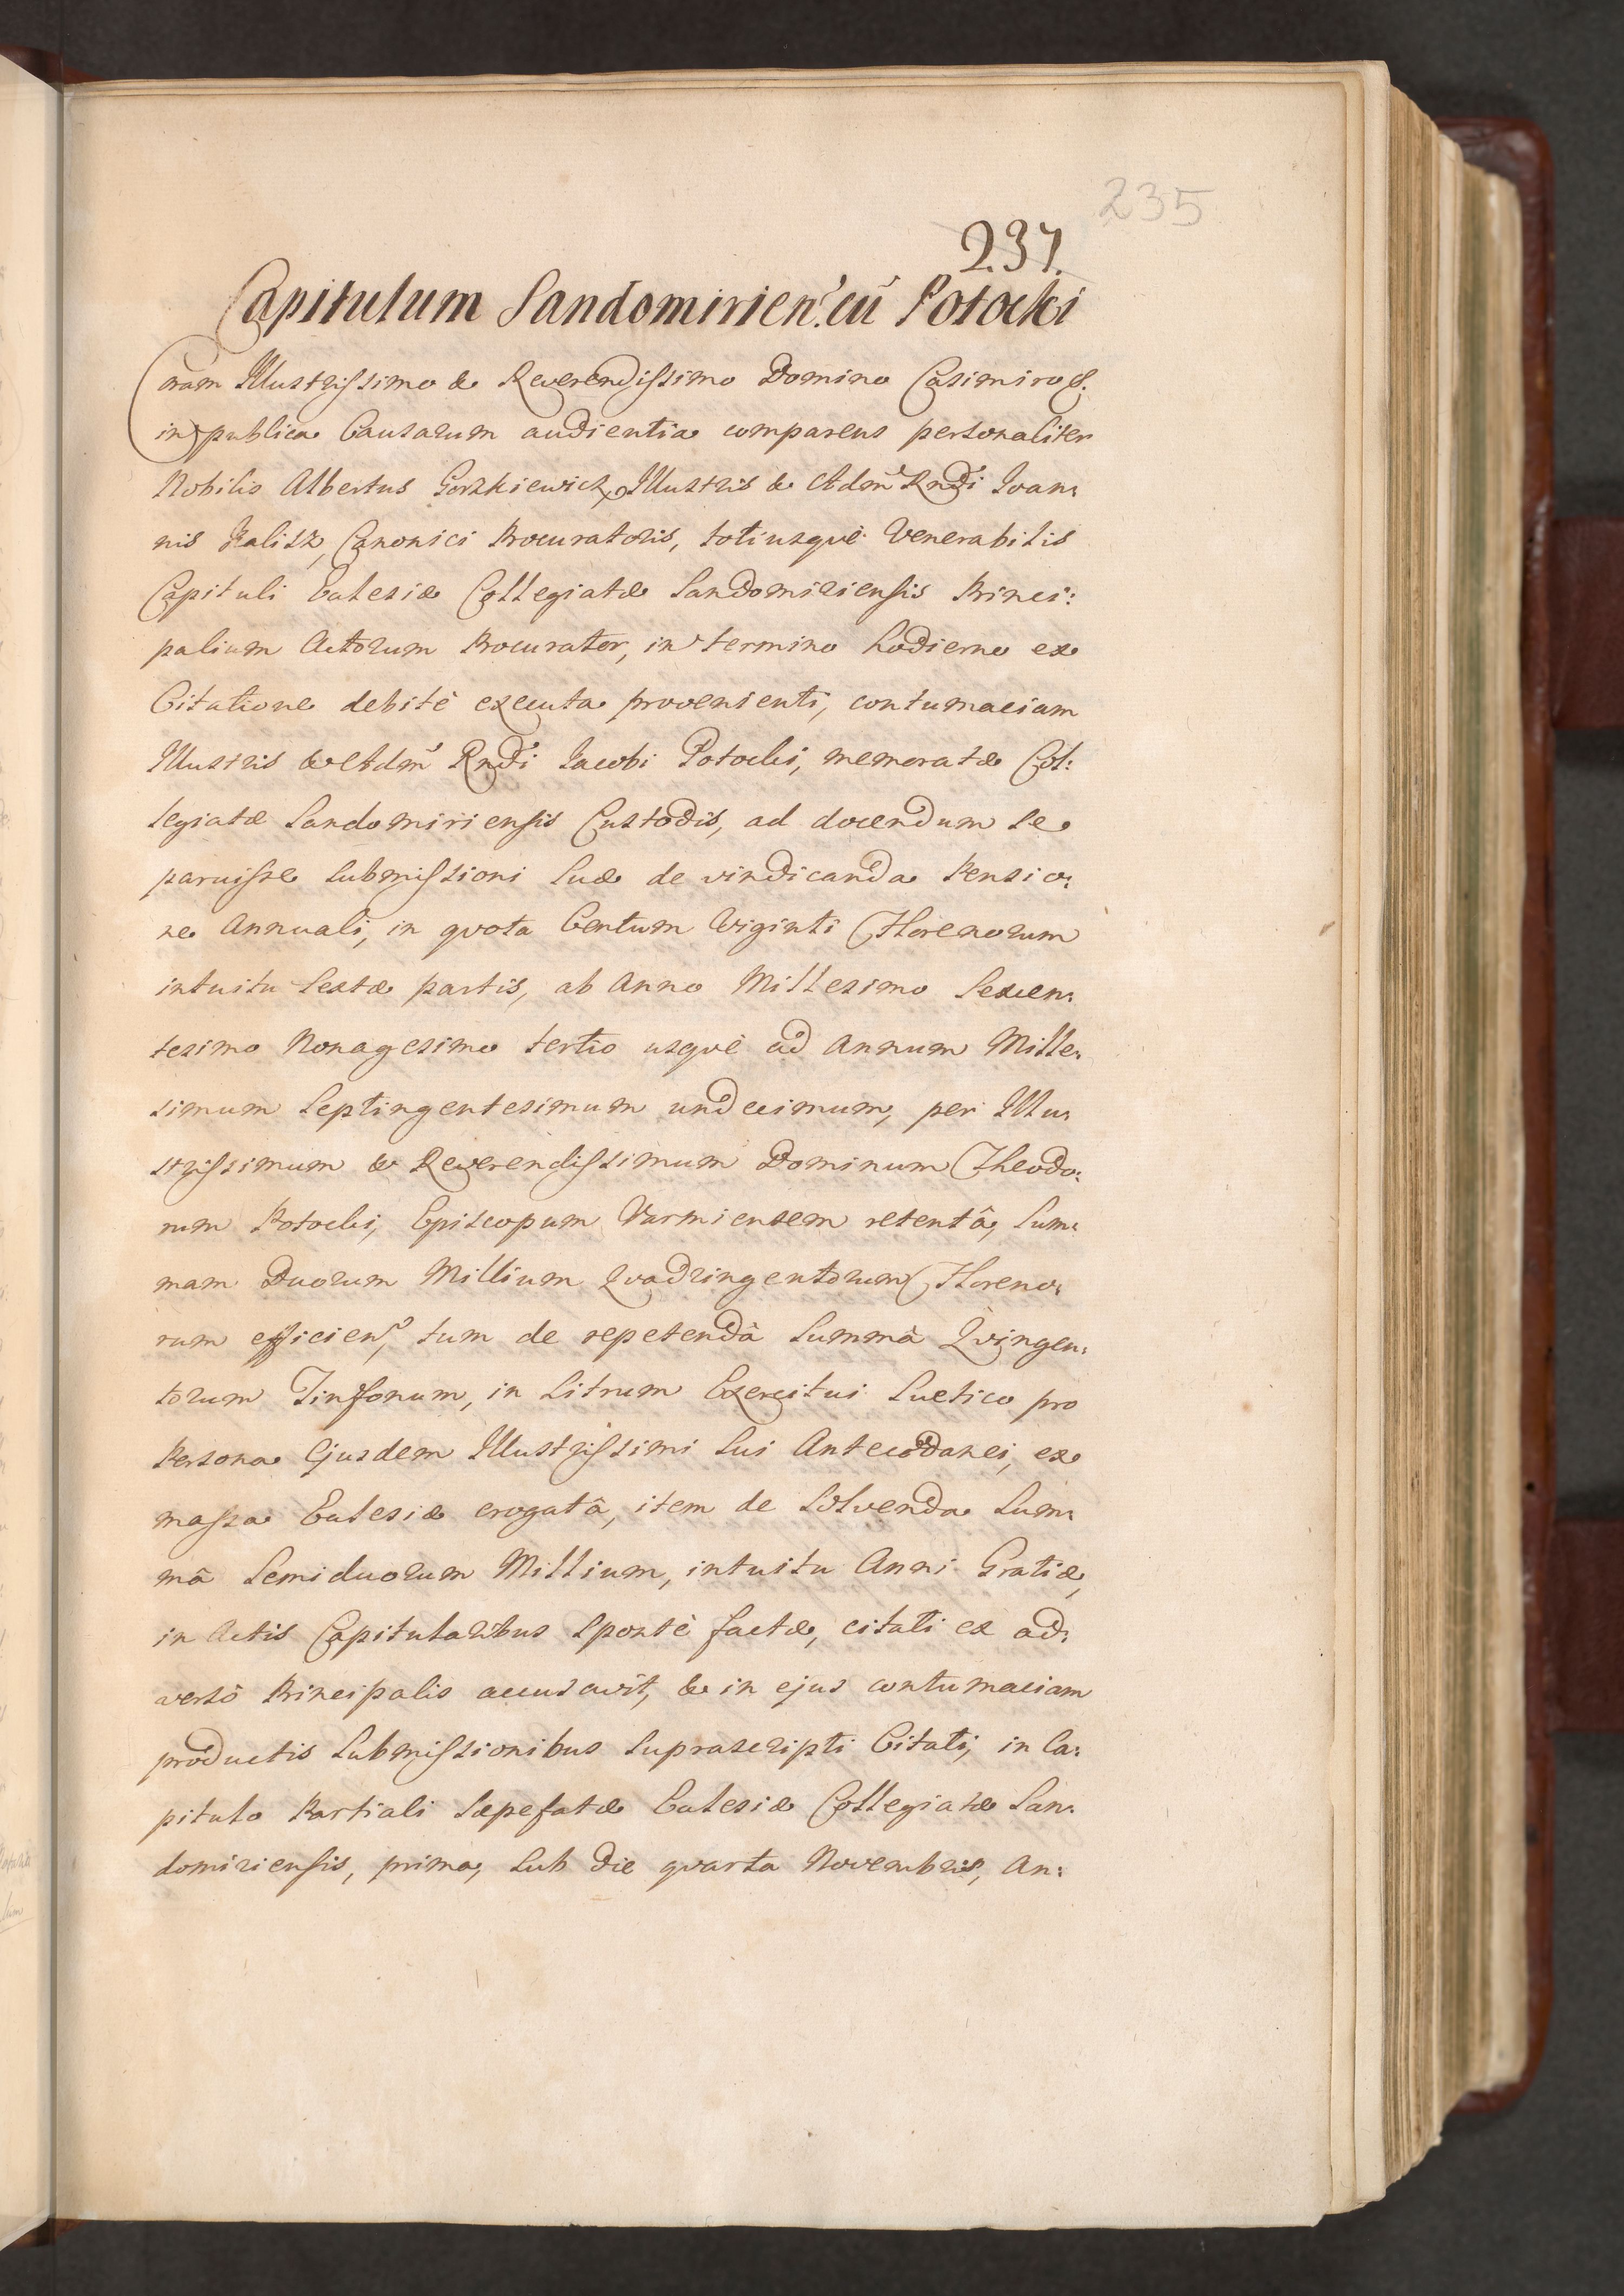 235
237.
Capitulum Sandomirien: cū Potocki
Coram Illustrissimo & Reverendissimo Domino Casimiro &.
in publica Causarum audientia comparens personaliter
Nobilis Albertus Gorzkiewicz, Illustris & Adm̃ Rñdi Ioan:
nis Kalisz, Canonici Procuratoris, totiusquè Venerabilis
Capituli Eccłesiæ Collegiatæ Sandomiriensis Princi:
palium Actorum Procurator, in termino hodierno ex
Citatione debitè executa provenienti, contumaciam
Illustris & Adm̃ Rñdi Iacobi Potocki, memoratæ Col:
legiatæ Sandomiriensis Custodis, ad docendum se
paruisse submissioni suæ de vindicanda Pensio:
ne Annuali, in qvota Centum Viginti Florenorum
intuitu sextæ partis, ab Anno Millesimo Sexcen:
tesimo Nonagesimo tertio usqvè ad Annum Mille:
simum Septingentesimum undecimum, per Illu:
strissimum & Reverendissimum Dominum Theodo:
rum Potocki, Episcopum Varmiensem retentâ, Sum:
mam Duorum Millium Qvadringentorum Floreno:
rum efficien, tum de repetendâ Summâ Qvingen:
torum Tinfonum, in Litrum Exercitui Suetico pro
Persona Ejusdem Illustrissimi sui Antecedanei, ex
massa Ecclesiæ erogatâ, item de solvenda Sum:
mâ Semiduorum Millium, intuitu Anni Gratiæ,
in Actis Capitularibus spontè factæ, citati ex ad:
versò Principalis accusavit, & in ejus contumaciam
productis Submissionibus suprascripti Citati, in Ca:
pitulo Partiali sæpefatæ Ecclesiæ Collegiatæ San:
domiriensis, prima, sub die qvarta Novembris, An: